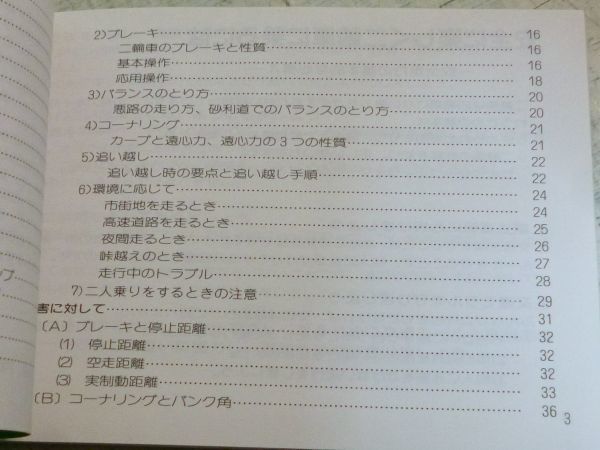 2)ブレーキ………16
二輪車のブレーキと性質………16
基本操作………16
応用操作………18
3)バランスのとり方………20
悪路の走り方、砂利道でのバランスのとり方………20
4)コーナリング………21
カーブと遠心力、遠心力の3つの性質………21
5)追い越し………22
追い越し時の要点と追い越し手順………22
6)環境に応じて………24
市街地を走るとき………24
高速道路を走るとき………25
夜間走るとき………26
峠越えのとき………27
走行中のトラブル………28
7)二人乗りをするときの注意………29
害に対して………31
(A) ブレーキと停止距離………32
(1) 停止距離………32
(2) 空走距離………32
(3) 実制動距離………33
(B) コーナリングとバンク角………36
3